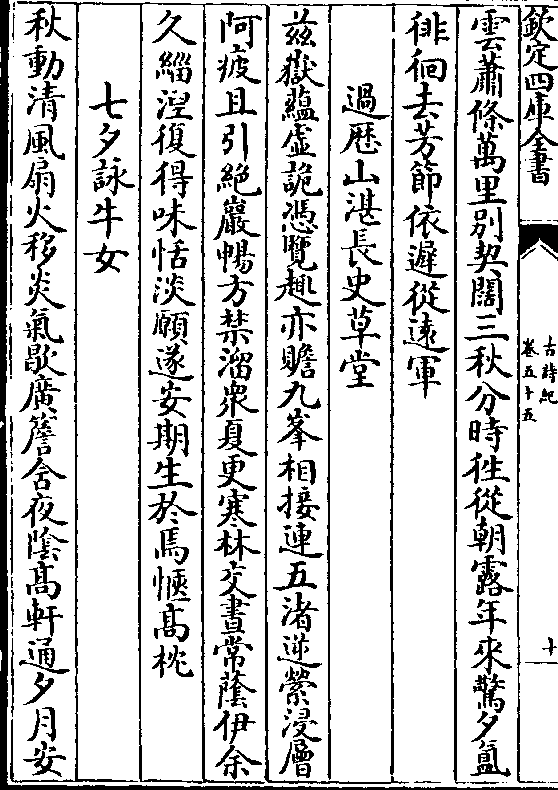 欽定四庫全書
古詩紀
卷五十五
十
雲蕭條萬里别契闊三秋分時往從朝露年來驚夕氲
徘徊去芳節依遲從遠軍
過歴山湛長史草堂
兹嶽藴虚詭憑覽趣亦贍九峯相接連五渚逆縈浸層
阿疲且引絶巖暢方禁溜衆夏更寒林交晝常蔭伊余
久緇涅復得味恬淡願遂安期生於焉愜髙枕
七夕詠牛女
秋動清風扇火移炎氣歇廣簷含夜陰髙軒通夕月安